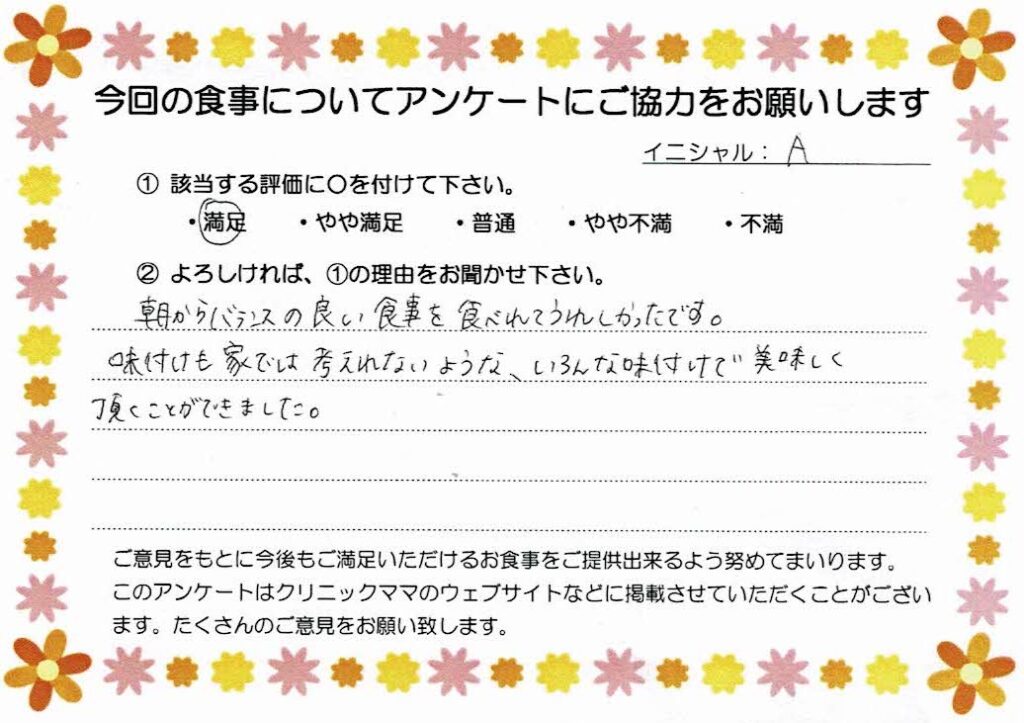 今回の食事についてアンケートにご協力をお願いします
イニシャル： A
① 該当する評価に〇を付けて下さい。
・満足 ・やや満足 ・普通 ・やや不満 ・不満
② よろしければ、①の理由をお聞かせ下さい。
朝からバランスの良い食事を食べれてうれしかったです。
味付けも家では考えれないような、いろんな味付けで美味しく
頂くことができました。
ご意見をもとに今後もご満足いただけるお食事をご提供出来るよう努めてまいります。
このアンケートはクリニックママのウェブサイトなどに掲載させていただくことがござい
ます。たくさんのご意見をお願い致します。